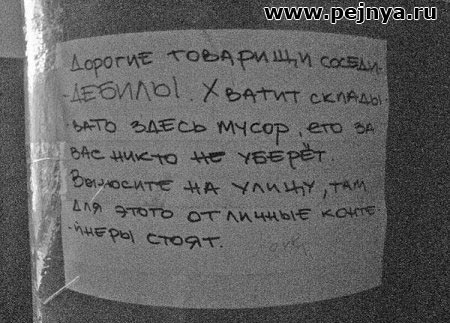 www.pejnya.ru
Дорогие товарищи соседи-
-дебилы. Хватит склады-
-вато здесь мусор, его за
вас никто не уберёт.
Выносите на улицу, там
для этого отличные конте-
-йнеры стоят.